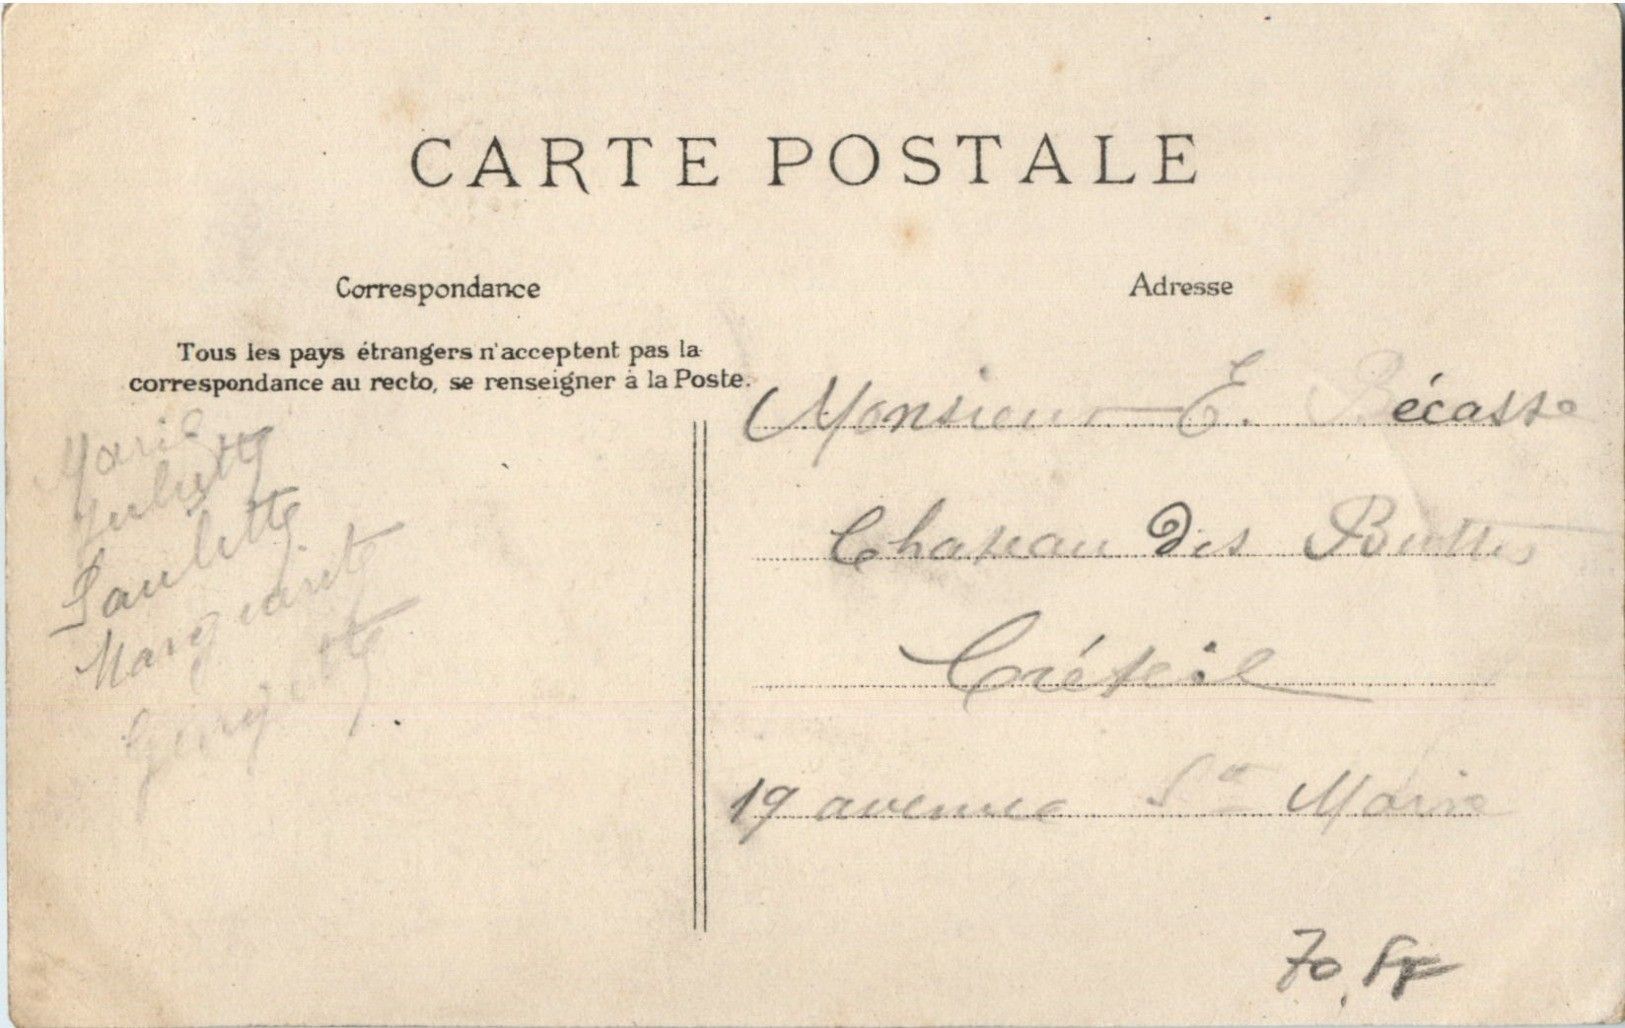 CARTE POSTALE
Correspondance
Tous les pays étrangers n'acceptent pas la
correspondance au recto, se renseigner à la Poste.
Marie
Juliette
Paulette
Marguerite
Georgette
Adresse
Monsieur E. Bécasse
des Buttes
Créteil
19 avenue Ste Marie
70 FF